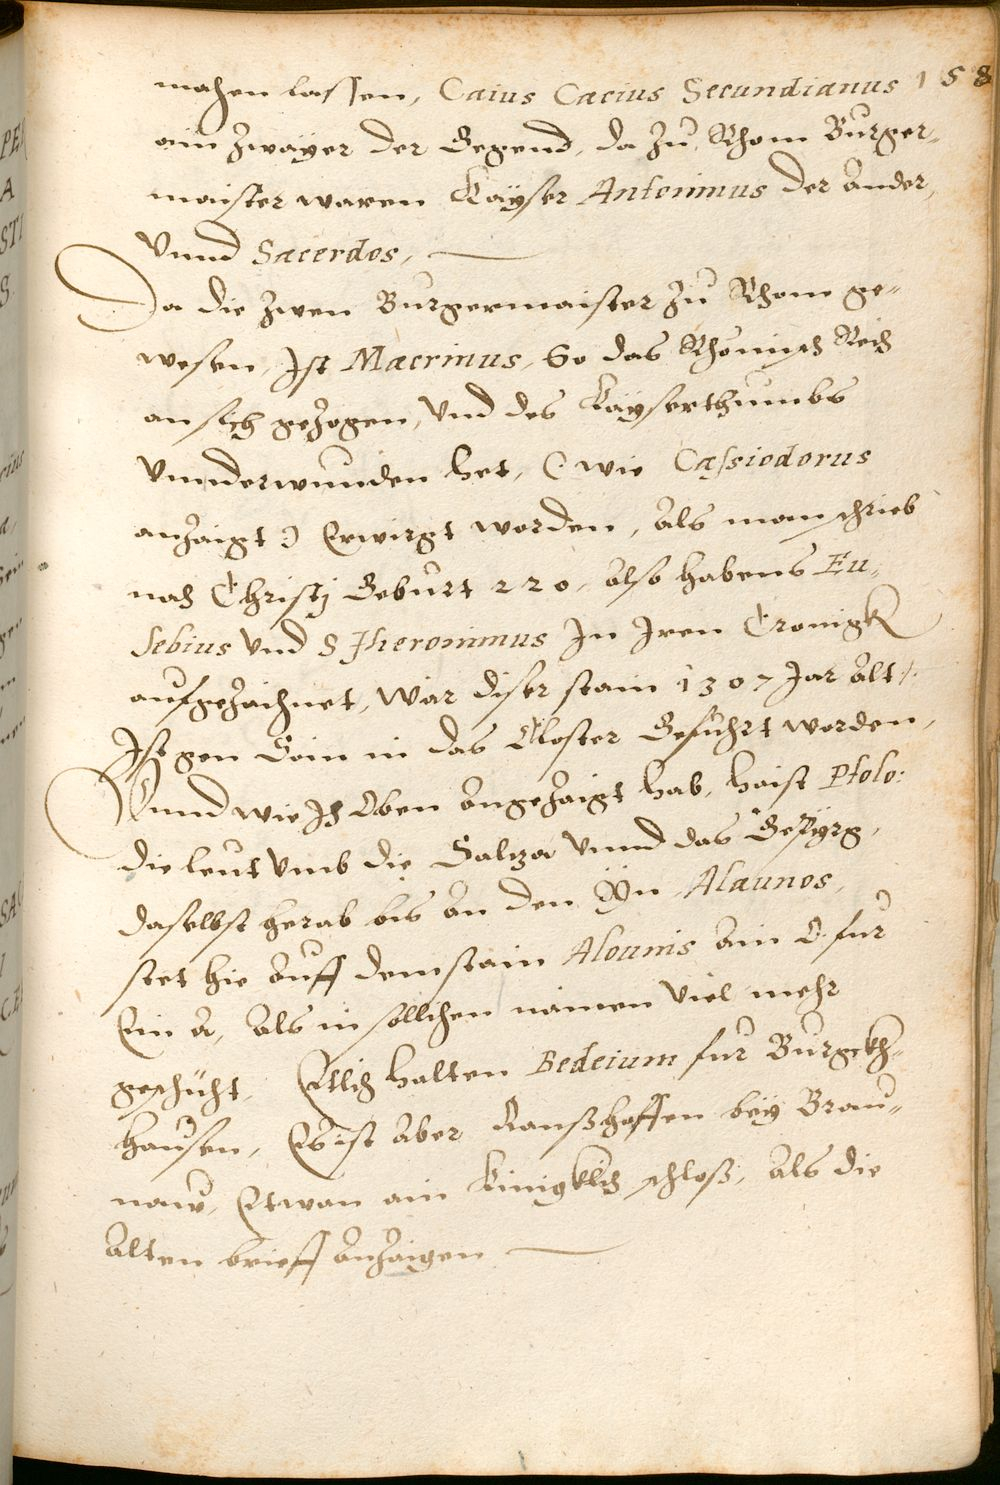 machen lassen, Caius Cacius Secundianus 158
ain Zwayer der Gegend, da zu Rhom Burger„
maister waren Kayser Antonimus der Ander,
Vnnd Sacerdos,
Da die zwen Burgermaister zu Rhom ge„
wesen, Ist Macrinus, So das Rhömisch Reich
an sich gezogen, Vnd des Kayserthumbs
Vnnderwunden het, ( wie Cassiodorus
anzaigt ) Erwirgt worden, Als man schrieb
nach Christj Geburt 220, also habens Eu„
sebius Vnd S Jheronimus In Iren Cronigk
aufgezaichnet, War diser stain 1307 Jar Alt
Ist gen Soin in das Closter Gefuhrt worden,
Vnnd wie Ich Oben Angezaigt hab, haist Ptolo:
die leut vmb die Salza Vnnd das Gepyrg,
daselbst herab bis an den Yn Alaunos,
stet hie Auff dem stain Alounis Ain O fur
Ein A, Als in sollichen namen Viel mehr
geschicht, Etlich halten Bedeium fur Burgckh„
hausen, Es ist Aber Ranßhoffen bey Brau„
naw, Etwan ain Kinigklich schloß, Als die
Alten brieff Anzaigen
PE
A
STI
S